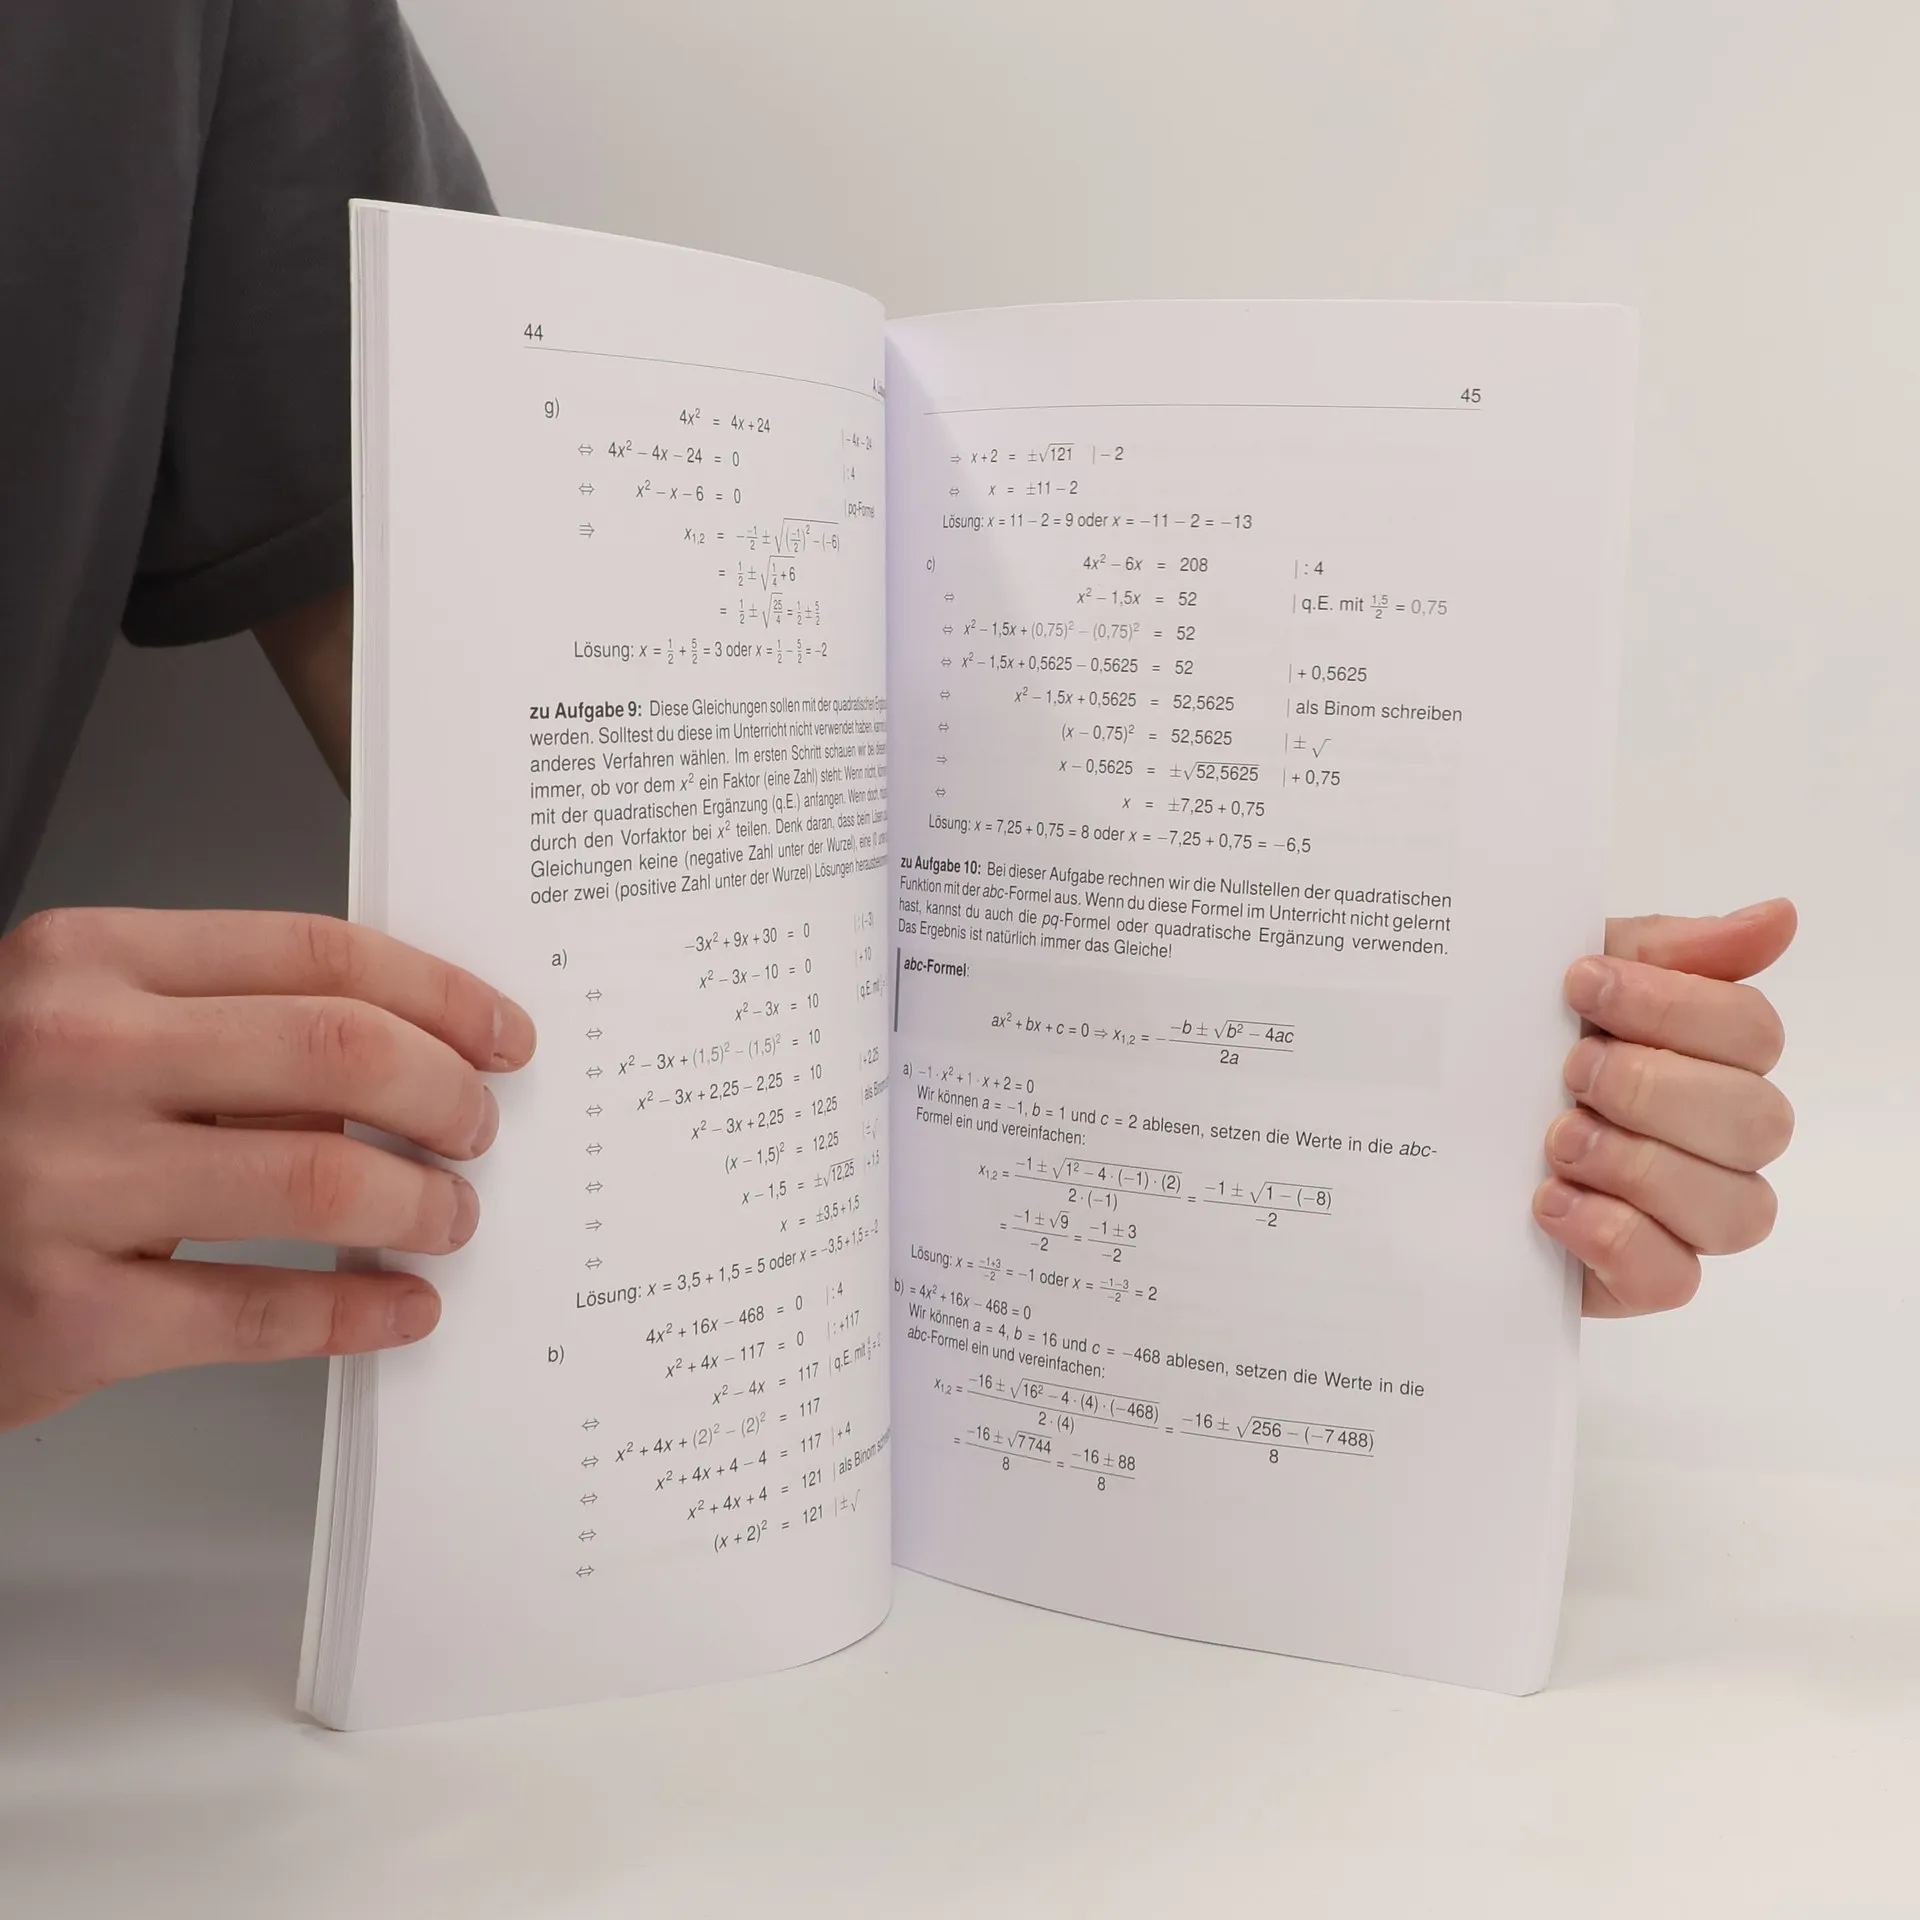 44
g) 4x² = 4x + 24 | − 4x − 24
⇔ 4x² − 4x − 24 = 0 | : 4
⇔ x² − x − 6 = 0 | pq-Formel
⇒ x₁,₂ = −\frac{-1}{2} ± √((\frac{-1}{2})² − (−6))
= \frac{1}{2} ± √(\frac{1}{4} + 6)
= \frac{1}{2} ± √(\frac{25}{4}) = \frac{1}{2} ± \frac{5}{2}
Lösung: x = \frac{1}{2} + \frac{5}{2} = 3 oder x = \frac{1}{2} − \frac{5}{2} = −2
zu Aufgabe 9: Diese Gleichungen sollen mit der quadratischen
werden. Solltest du diese im Unterricht nicht verwendet haben,
anderes Verfahren wählen. Im ersten Schritt schauen wir bei
immer, ob vor dem x² ein Faktor (eine Zahl) steht: Wenn nicht,
mit der quadratischen Ergänzung (q.E.) anfangen. Wenn doch,
durch den Vorfaktor bei x² teilen. Denk daran, dass beim
Gleichungen keine (negative Zahl unter der Wurzel), eine
oder zwei (positive Zahl unter der Wurzel) Lösungen
a) −3x² + 9x + 30 = 0 | : (−3)
⇔ x² − 3x − 10 = 0 | + 10
⇔ x² − 3x = 10 | q.E. mit
⇔ x² − 3x + (1,5)² − (1,5)² = 10
⇔ x² − 3x + 2,25 − 2,25 = 10 | + 2,25
⇔ x² − 3x + 2,25 = 12,25 | als
⇔ (x − 1,5)² = 12,25 | ± √
⇒ x − 1,5 = ±√12,25 | + 1,5
⇔ x = ±3,5 + 1,5
Lösung: x = 3,5 + 1,5 = 5 oder x = −3,5 + 1,5 = −2
b) 4x² + 16x − 468 = 0 | : 4
x² + 4x − 117 = 0 | : +117
⇔ x² − 4x = 117 | q.E. mit \frac{4}{2} = 2
⇔ x² + 4x + (2)² − (2)² = 117
⇔ x² + 4x + 4 − 4 = 117 | + 4
⇔ x² + 4x + 4 = 121 | als Binom
⇔ (x + 2)² = 121 | ± √
45
⇒ x + 2 = ±√121 | − 2
⇔ x = ±11 − 2
Lösung: x = 11 − 2 = 9 oder x = −11 − 2 = −13
c) 4x² − 6x = 208 | : 4
⇔ x² − 1,5x = 52 | q.E. mit \frac{1,5}{2} = 0,75
⇔ x² − 1,5x + (0,75)² − (0,75)² = 52
⇔ x² − 1,5x + 0,5625 − 0,5625 = 52 | + 0,5625
⇔ x² − 1,5x + 0,5625 = 52,5625 | als Binom schreiben
⇔ (x − 0,75)² = 52,5625 | ± √
⇒ x − 0,5625 = ±√52,5625 | + 0,75
⇔ x = ±7,25 + 0,75
Lösung: x = 7,25 + 0,75 = 8 oder x = −7,25 + 0,75 = −6,5
zu Aufgabe 10: Bei dieser Aufgabe rechnen wir die Nullstellen der quadratischen
Funktion mit der abc-Formel aus. Wenn du diese Formel im Unterricht nicht gelernt
hast, kannst du auch die pq-Formel oder quadratische Ergänzung verwenden.
Das Ergebnis ist natürlich immer das Gleiche!
abc-Formel:
ax² + bx + c = 0 ⇒ x₁,₂ = −\frac{-b ± √(b² − 4ac)}{2a}
a) −1 · x² + 1 · x + 2 = 0
Wir können a = −1, b = 1 und c = 2 ablesen, setzen die Werte in die abc-
Formel ein und vereinfachen:
x₁,₂ = \frac{−1 ± √(1² − 4 · (−1) · (2))}{2 · (−1)} = \frac{−1 ± √(1 − (−8))}{−2}
= \frac{−1 ± √9}{−2} = \frac{−1 ± 3}{−2}
Lösung: x = \frac{−1+3}{−2} = −1 oder x = \frac{−1−3}{−2} = 2
b) = 4x² + 16x − 468 = 0
Wir können a = 4, b = 16 und c = −468 ablesen, setzen die Werte in die
abc-Formel ein und vereinfachen:
x₁,₂ = \frac{−16 ± √(16² − 4 · (4) · (−468))}{2 · (4)} = \frac{−16 ± √(256 − (−7 488))}{8}
= \frac{−16 ± √7 744}{8} = \frac{−16 ± 88}{8}